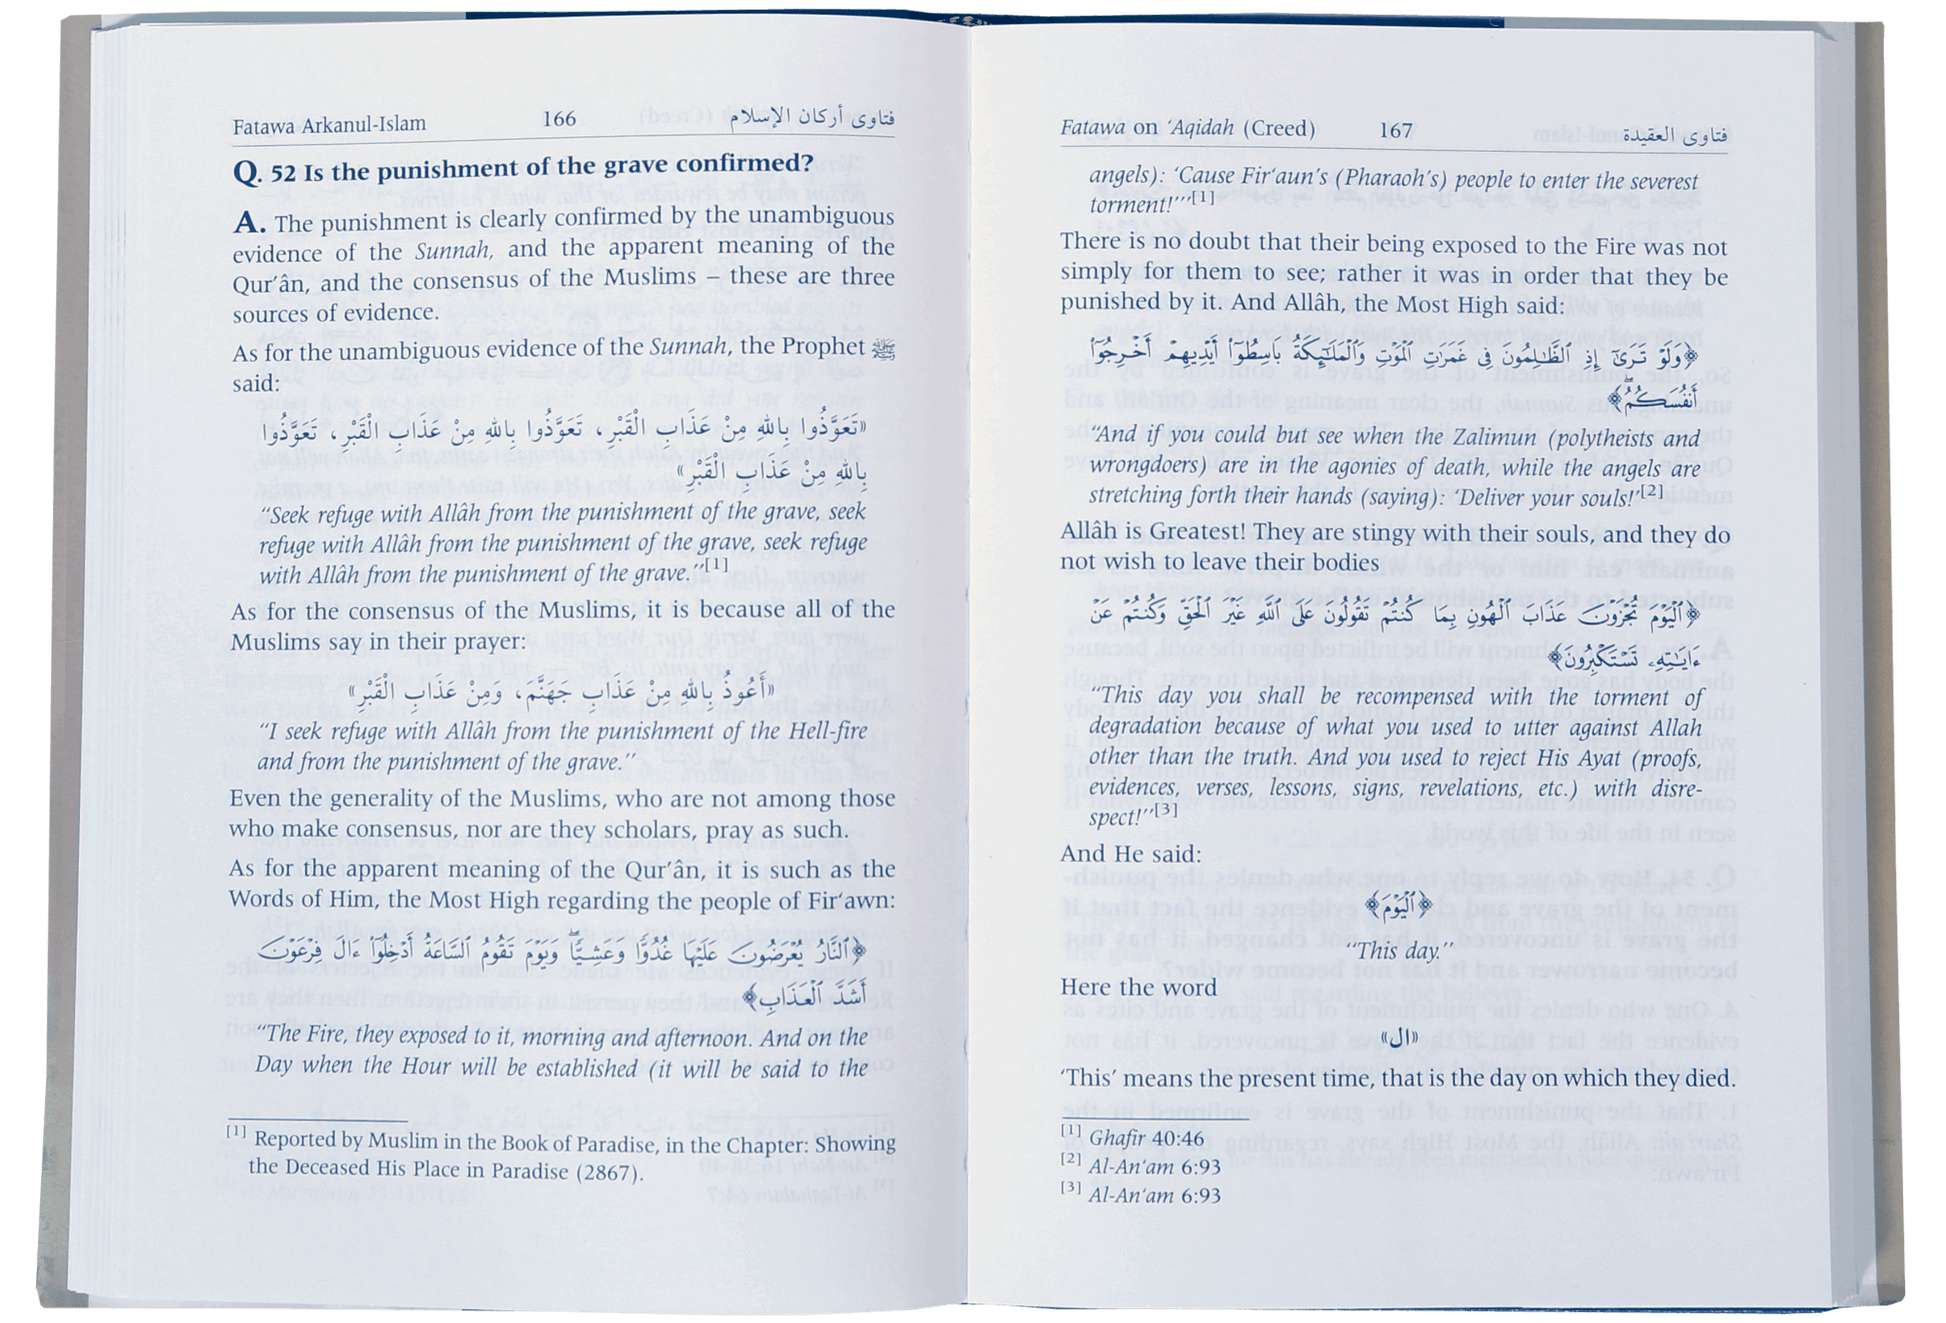 Fatawa Arkanul-Islam 166 فتاوى أركان الإسلام
Q. 52 Is the punishment of the grave confirmed?
A. The punishment is clearly confirmed by the unambiguous
evidence of the Sunnah, and the apparent meaning of the
Qur'ân, and the consensus of the Muslims – these are three
sources of evidence.
As for the unambiguous evidence of the Sunnah, the Prophet ﷺ
said:
«تَعَوَّذُوا بِاللهِ مِنْ عَذَابِ الْقَبْرِ، تَعَوَّذُوا بِاللهِ مِنْ عَذَابِ الْقَبْرِ، تَعَوَّذُوا
بِاللهِ مِنْ عَذَابِ الْقَبْرِ»
"Seek refuge with Allâh from the punishment of the grave, seek
refuge with Allâh from the punishment of the grave, seek refuge
with Allâh from the punishment of the grave."[1]
As for the consensus of the Muslims, it is because all of the
Muslims say in their prayer:
«أَعُوذُ بِاللهِ مِنْ عَذَابِ جَهَنَّمَ، وَمِنْ عَذَابِ الْقَبْرِ»
"I seek refuge with Allâh from the punishment of the Hell-fire
and from the punishment of the grave."
Even the generality of the Muslims, who are not among those
who make consensus, nor are they scholars, pray as such.
As for the apparent meaning of the Qur'ân, it is such as the
Words of Him, the Most High regarding the people of Fir'awn:
﴿ٱلنَّارُ يُعْرَضُونَ عَلَيْهَا غُدُوًّا وَعَشِيًّا ۖ وَيَوْمَ تَقُومُ ٱلسَّاعَةُ أَدْخِلُوٓا۟ ءَالَ فِرْعَوْنَ
أَشَدَّ ٱلْعَذَابِ﴾
"The Fire, they exposed to it, morning and afternoon. And on the
Day when the Hour will be established (it will be said to the
[1] Reported by Muslim in the Book of Paradise, in the Chapter: Showing
the Deceased His Place in Paradise (2867).
Fatawa on 'Aqidah (Creed) 167 فتاوى العقيدة
angels): 'Cause Fir'aun's (Pharaoh's) people to enter the severest
torment!'"[1]
There is no doubt that their being exposed to the Fire was not
simply for them to see; rather it was in order that they be
punished by it. And Allâh, the Most High said:
﴿وَلَوْ تَرَىٰٓ إِذِ ٱلظَّـٰلِمُونَ فِى غَمَرَٰتِ ٱلْمَوْتِ وَٱلْمَلَـٰٓئِكَةُ بَاسِطُوٓا۟ أَيْدِيهِمْ أَخْرِجُوٓا۟
أَنفُسَكُمُ ۖ﴾
"And if you could but see when the Zalimun (polytheists and
wrongdoers) are in the agonies of death, while the angels are
stretching forth their hands (saying): 'Deliver your souls!'"[2]
Allâh is Greatest! They are stingy with their souls, and they do
not wish to leave their bodies
﴿ٱلْيَوْمَ تُجْزَوْنَ عَذَابَ ٱلْهُونِ بِمَا كُنتُمْ تَقُولُونَ عَلَى ٱللَّهِ غَيْرَ ٱلْحَقِّ وَكُنتُمْ عَنْ
ءَايَـٰتِهِۦ تَسْتَكْبِرُونَ﴾
"This day you shall be recompensed with the torment of
degradation because of what you used to utter against Allah
other than the truth. And you used to reject His Ayat (proofs,
evidences, verses, lessons, signs, revelations, etc.) with disre-
spect!"[3]
And He said:
﴿ٱلْيَوْمَ﴾
"This day."
Here the word
«ال»
'This' means the present time, that is the day on which they died.
[1] Ghafir 40:46
[2] Al-An'am 6:93
[3] Al-An'am 6:93